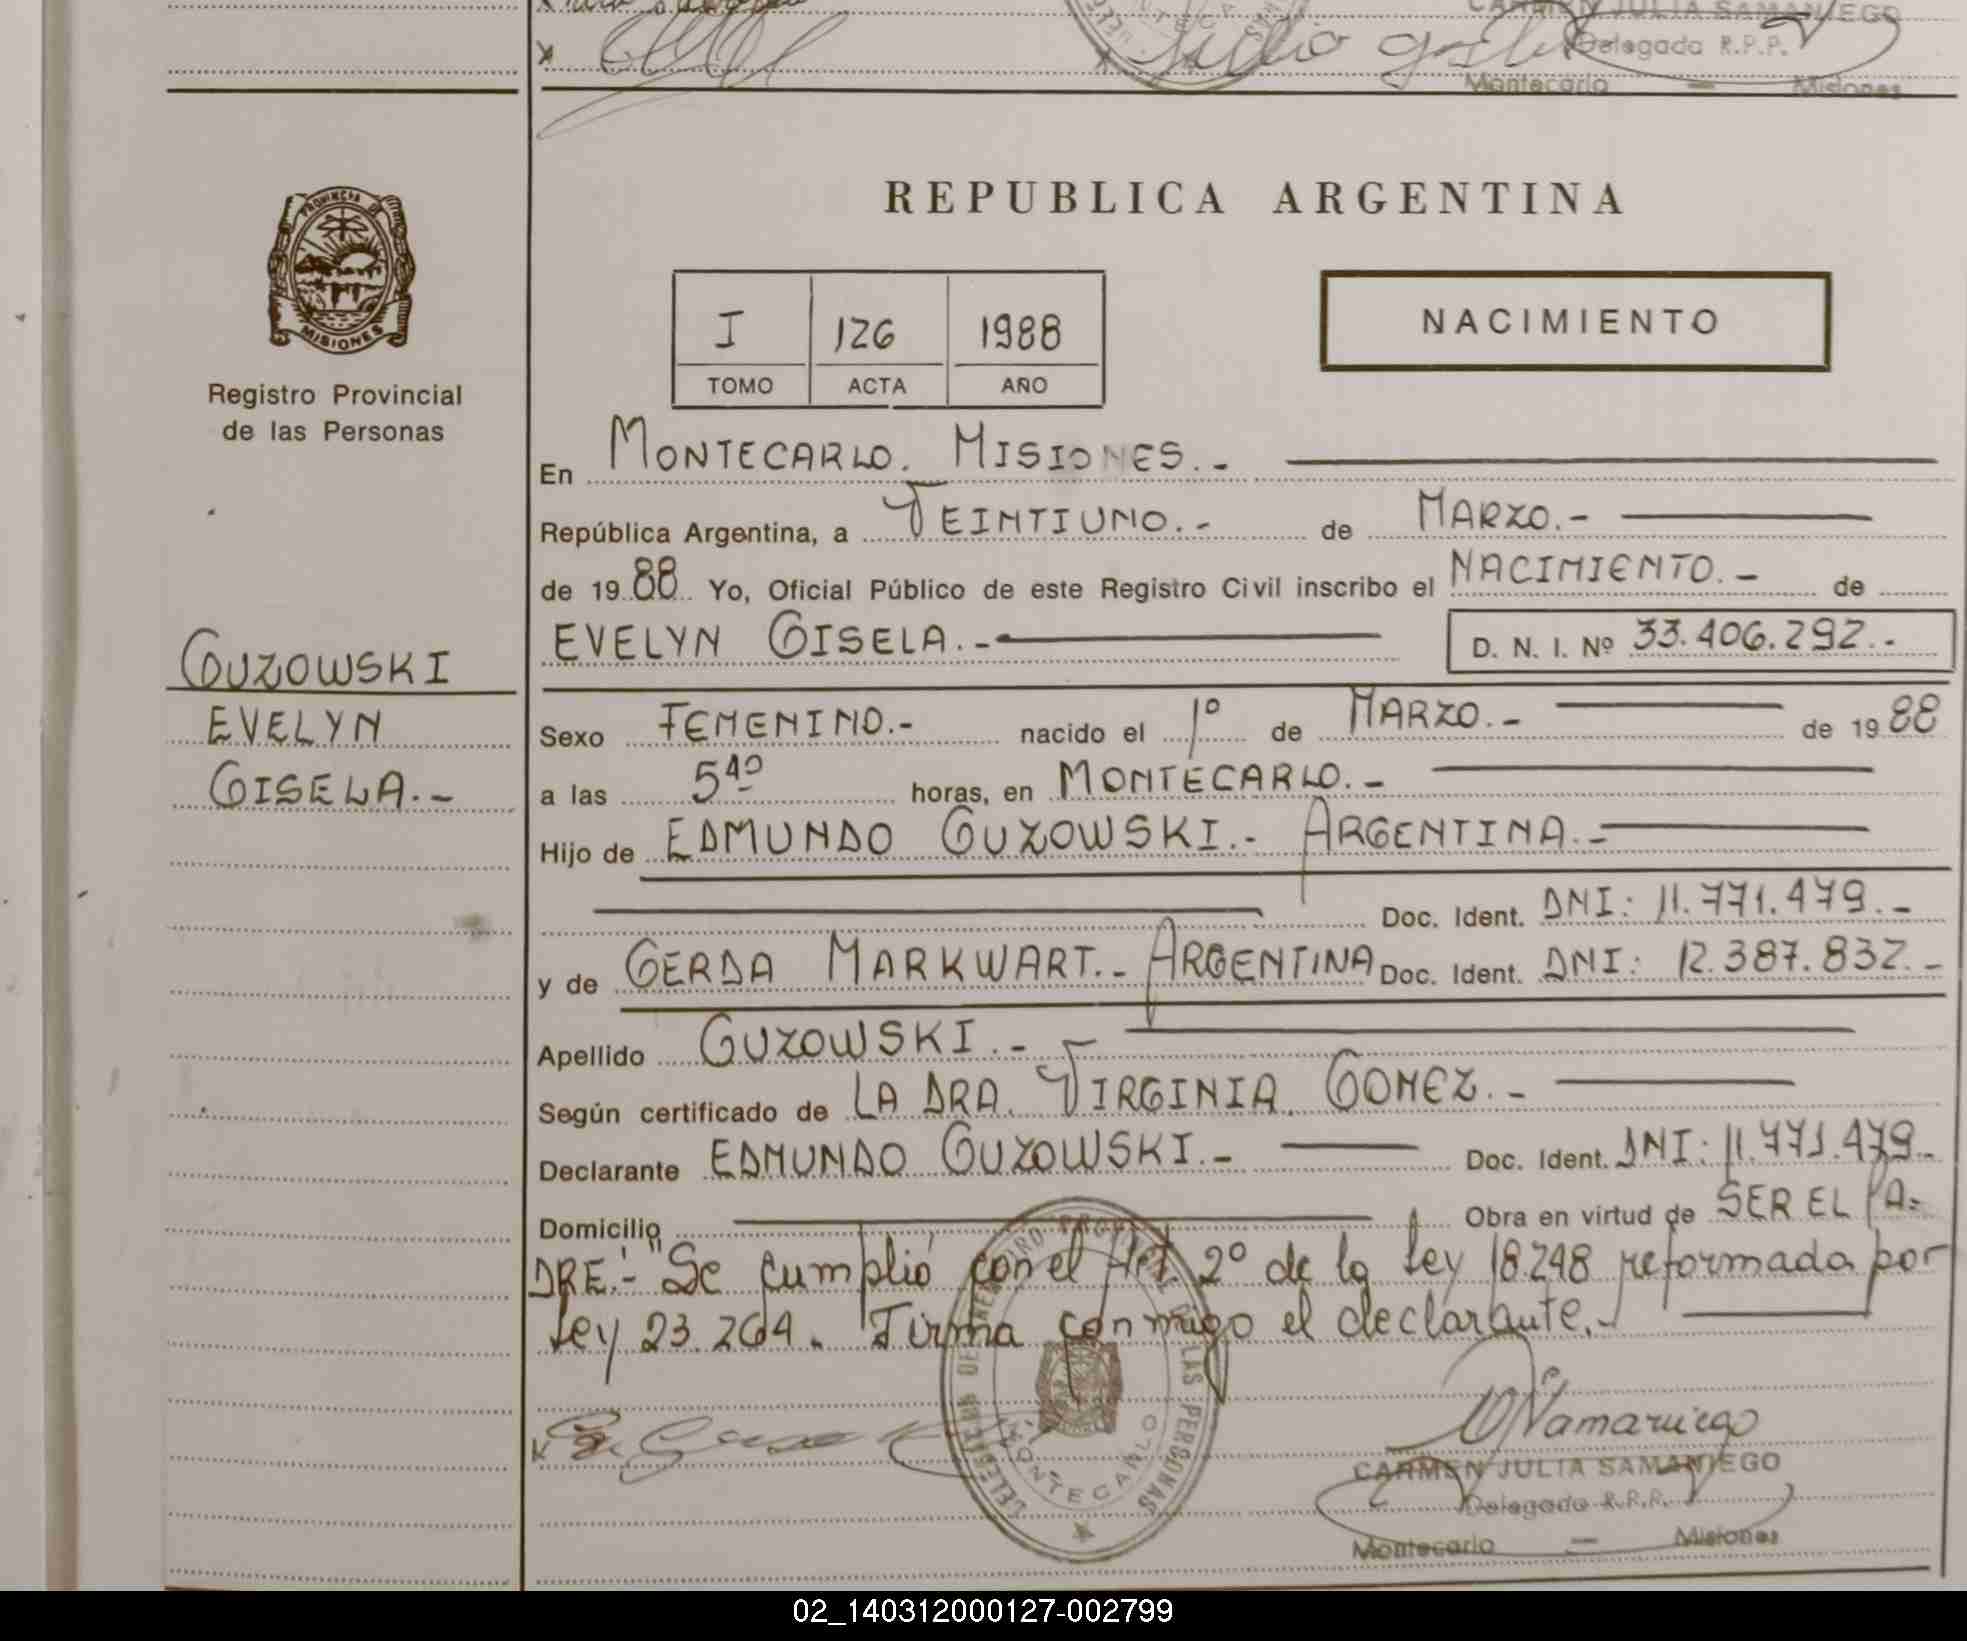 CARMEN JULIA SAMANIEGO
Delegada R.P.P.
Montecarlo — Misiones
PROVINCIA DE
MISIONES
Registro Provincial
de las Personas
GUZOWSKI
EVELYN
GISELA.-
REPUBLICA ARGENTINA
I 126 1988
TOMO ACTA AÑO
NACIMIENTO
En MONTECARLO. MISIONES.-
República Argentina, a VEINTIUNO.- de MARZO.-
de 19 88 Yo, Oficial Público de este Registro Civil inscribo el NACIMIENTO.- de
EVELYN GISELA.- D. N. I. Nº 33.406.292.-
Sexo FEMENINO.- nacido el 1º de MARZO.- de 19 88
a las 5 40 horas, en MONTECARLO.-
Hijo de EDMUNDO GUZOWSKI.- ARGENTINA.-
Doc. Ident. DNI: 11.771.479.-
y de GERDA MARKWART.- ARGENTINA Doc. Ident. DNI: 12.387.832.-
Apellido GUZOWSKI.-
Según certificado de LA DRA. VIRGINIA GOMEZ.-
Declarante EDMUNDO GUZOWSKI.- Doc. Ident. DNI: 11.771.479.-
Domicilio Obra en virtud de SER EL PA=
DRE.- "Se cumplió con el Art. 2º de la Ley 18.248 reformada por
Ley 23.264. Firma conmigo el declarante.-
DELEGACION DEL REGISTRO PROVINCIAL DE LAS PERSONAS
MONTECARLO
CARMEN JULIA SAMANIEGO
Delegada R.P.P.
Montecarlo — Misiones
02_140312000127-002799